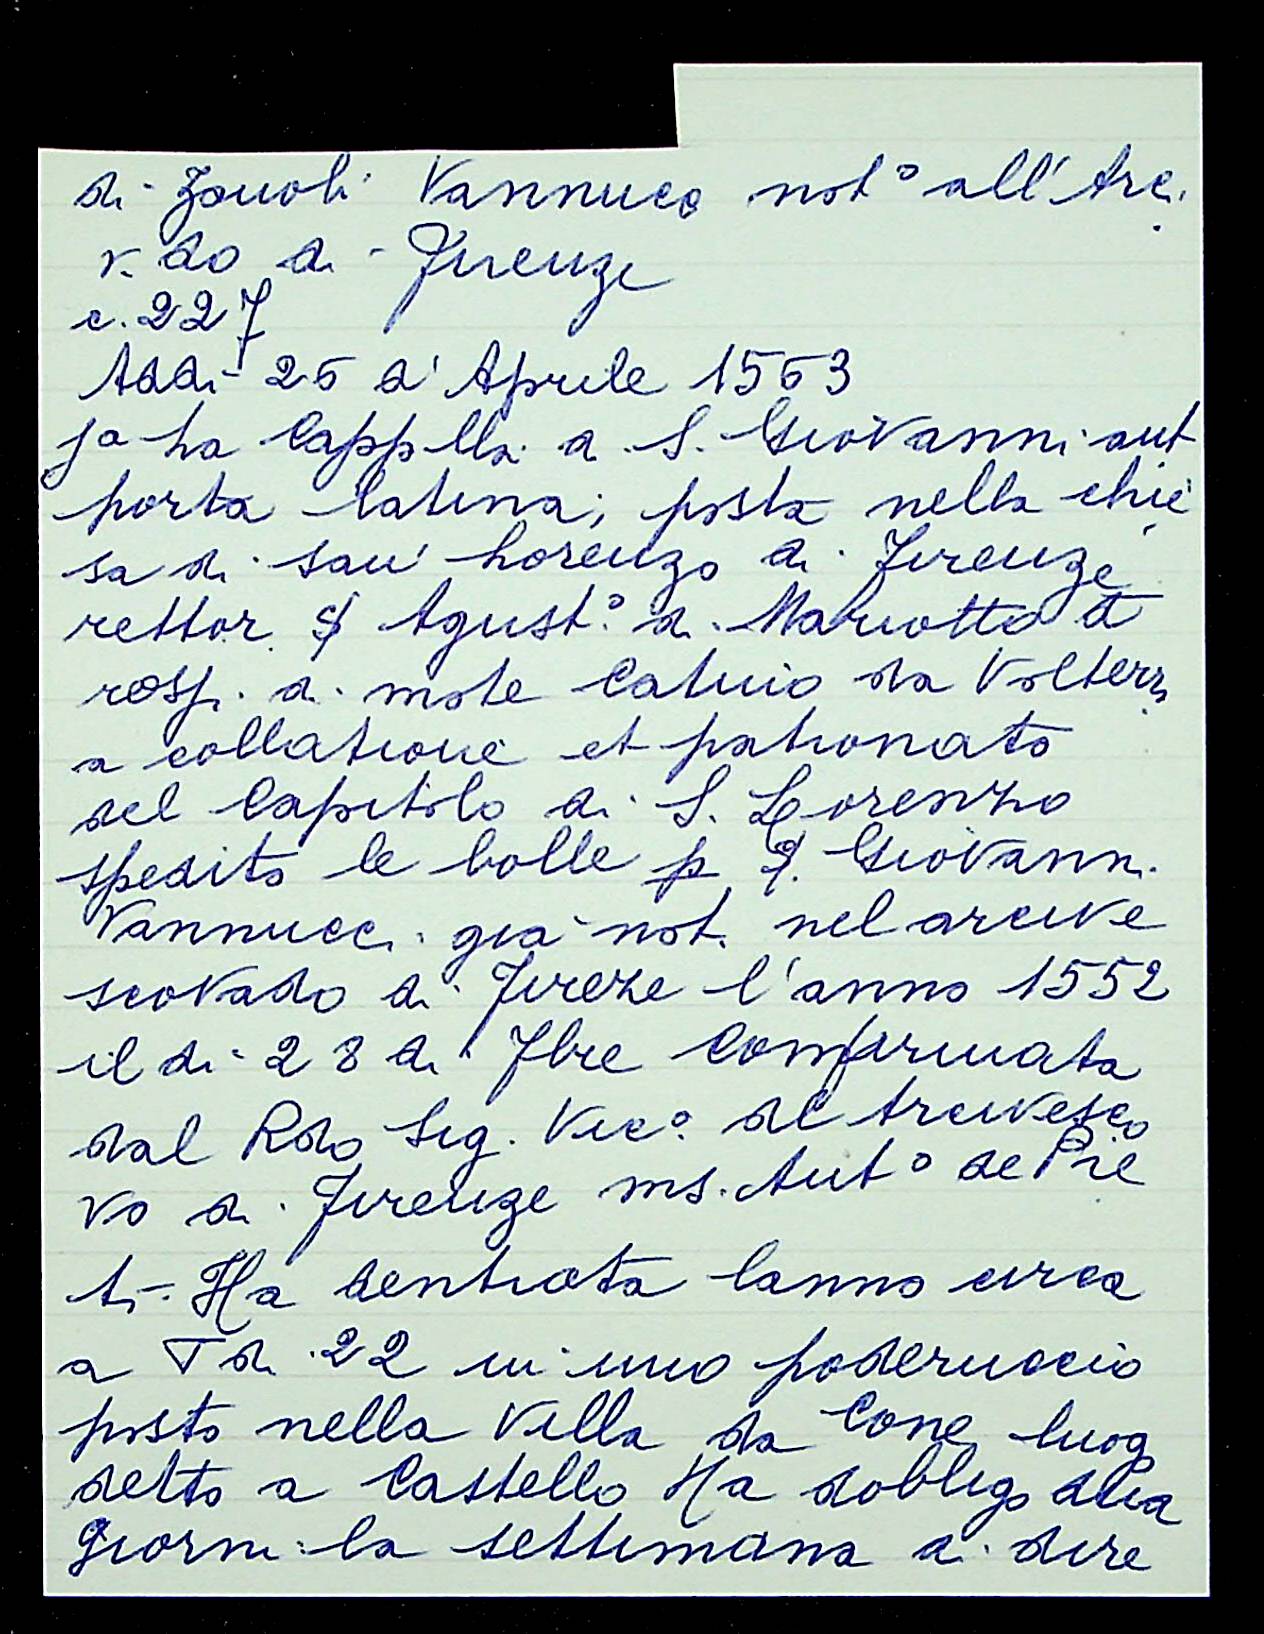 di Zanobi Vannucci not° all'Arci.
v.do di Firenze
c. 227
Addi 26 d'Aprile 1563
La Cappella di S. Giovanni ant
porta latina; posta nella chie
sa di san Lorenzo di Firenze
rettor Agust.° di Mariotto
rosp. di mote Catinio da Volterr
a collatione et patronato
del Capitolo di S. Lorenzo
spedito le bolle p S. Giovanni
Vannucci già not. nel arcive
scovado di Fireze l'anno 1552
il di 28 di 7bre Confirmata
dal Rdo Sig. Vic° del Arcivesco
vo di Firenze ms. Ant° de Pie
ti. Ha dentrata lanno circa
a di 22 in uno poderuccio
posto nella Villa da Cone luog
detto a Castello Ha dobligo dua
Giorni la settimana di dire